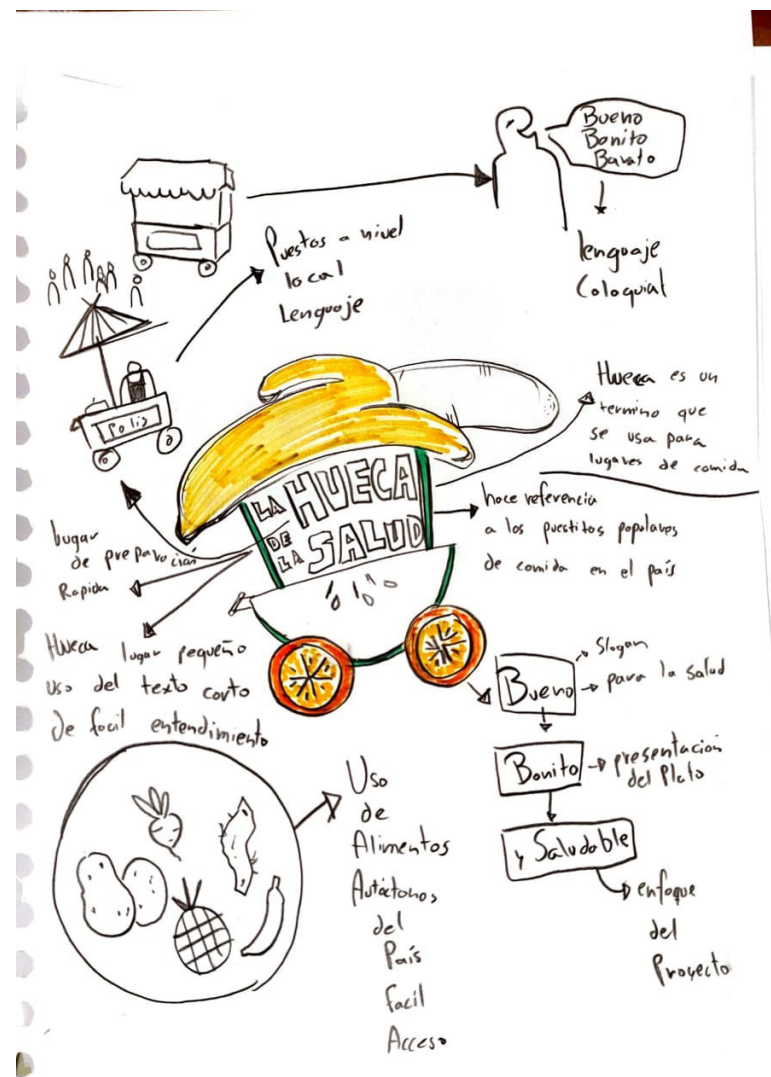 Bueno
Bonito
Barato
lenguaje
Coloquial
Puestos a nivel
local
Lenguaje
Polis
Hueca es un
termino que
se usa para
lugares de comida
LA HUECA
DE LA SALUD
hace referencia
a los puestitos populares
de comida en el país
lugar
de preparación
Rapida
Hueca lugar pequeño
uso del texto corto
de facil entendimiento
Bueno
Slogan
para la salud
Bonito
presentación
del Plato
y Saludable
enfoque
del
Proyecto
Uso
de
Alimentos
Autóctonos
del
País
facil
Acceso